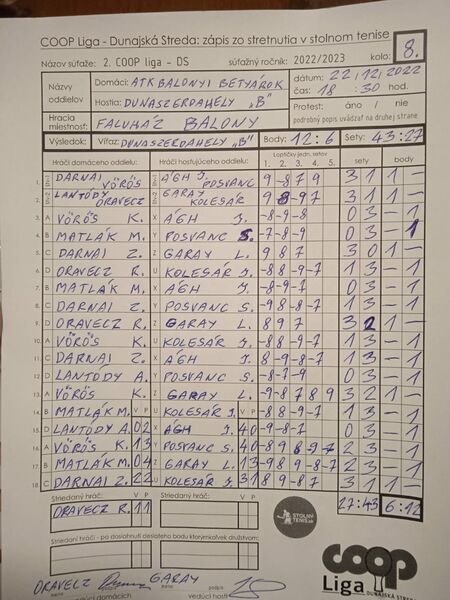 COOP Liga - Dunajská Streda: zápis zo stretnutia v stolnom tenise
Názov súťaže: 2. COOP liga – DS súťažný ročník: 2022/2023 kolo: 8.
Názvy oddielov
Domáci: ATK BALONYI BETYÁROK
Hostia: DUNASZERDAHELY „B"
dátum: 22/12/2022
čas: 18 : 30 hod.
Hracia miestnosť: FALUHÁZ BALONY
Protest: áno / nie
podrobný popis uvádzať na druhej strane
Výsledok: Víťaz: DUNASZERDAHELY „B" Body: 12:6 Sety: 43:27
Hráči domáceho oddielu: Hráči hosťujúceho oddielu: Loptičky jedn. setov sety body
1. 2. 3. 4. 5.
1. DARNAI VÖRÖS ÁGH J. POSVANC 9 -8 7 9 3 1 1 –
2. LANTÓDY ORAVECZ GARAY KOLESÁR 9 8 -9 7 3 1 1 –
3. A VÖRÖS K. X ÁGH J. -8 -9 -8 0 3 – 1
4. B MATLÁK M. Y POSVANC S. -7 -8 -9 0 3 – 1
5. C DARNAI Z. Z GARAY L. 9 8 7 3 0 1 –
6. D ORAVECZ R. U KOLESÁR J. -8 8 -9 -7 1 3 – 1
7. B MATLÁK M. X ÁGH J. -8 -9 -7 0 3 – 1
8. C DARNAI Z. Y POSVANC S. -9 8 -8 -7 1 3 – 1
9. D ORAVECZ R. Z GARAY L. 8 9 7 3 2 1 –
10. A VÖRÖS K. U KOLESÁR J. -8 8 -9 -7 1 3 – 1
11. C DARNAI Z. X ÁGH J. 8 -9 -8 -7 1 3 – 1
12. D LANTÓDY A. Y POSVANC S. -8 -7 -9 0 3 – 1
13. A VÖRÖS K. Z GARAY L. -9 8 7 8 9 3 2 1 –
14. B MATLÁK M. V P U KOLESÁR J. V P -8 8 -9 -7 1 3 – 1
15. D LANTÓDY A. 0 2 X ÁGH J. 4 0 -8 -9 -7 0 3 – 1
16. A VÖRÖS K. 1 3 Y POSVANC S. 4 0 -8 9 8 -9 -7 2 3 – 1
17. B MATLÁK M. 0 4 Z GARAY L. 1 3 -9 8 9 -8 -7 2 3 – 1
18. C DARNAI Z. 2 2 U KOLESÁR J. 3 1 8 -9 -8 -7 1 3 – 1
Striedaný hráč: V P Striedaný hráč: V P
ORAVECZ R. 1 1
27:43 6:12
STOLNÝ TENIS.sk
Striedaní hráči - po dosiahnutí desiateho bodu ktorýmkoľvek družstvom:
coop
Liga DUNAJSKÁ STREDA
ORAVECZ GARAY
meno podpis meno podpis
vedúci domácich vedúci hostí